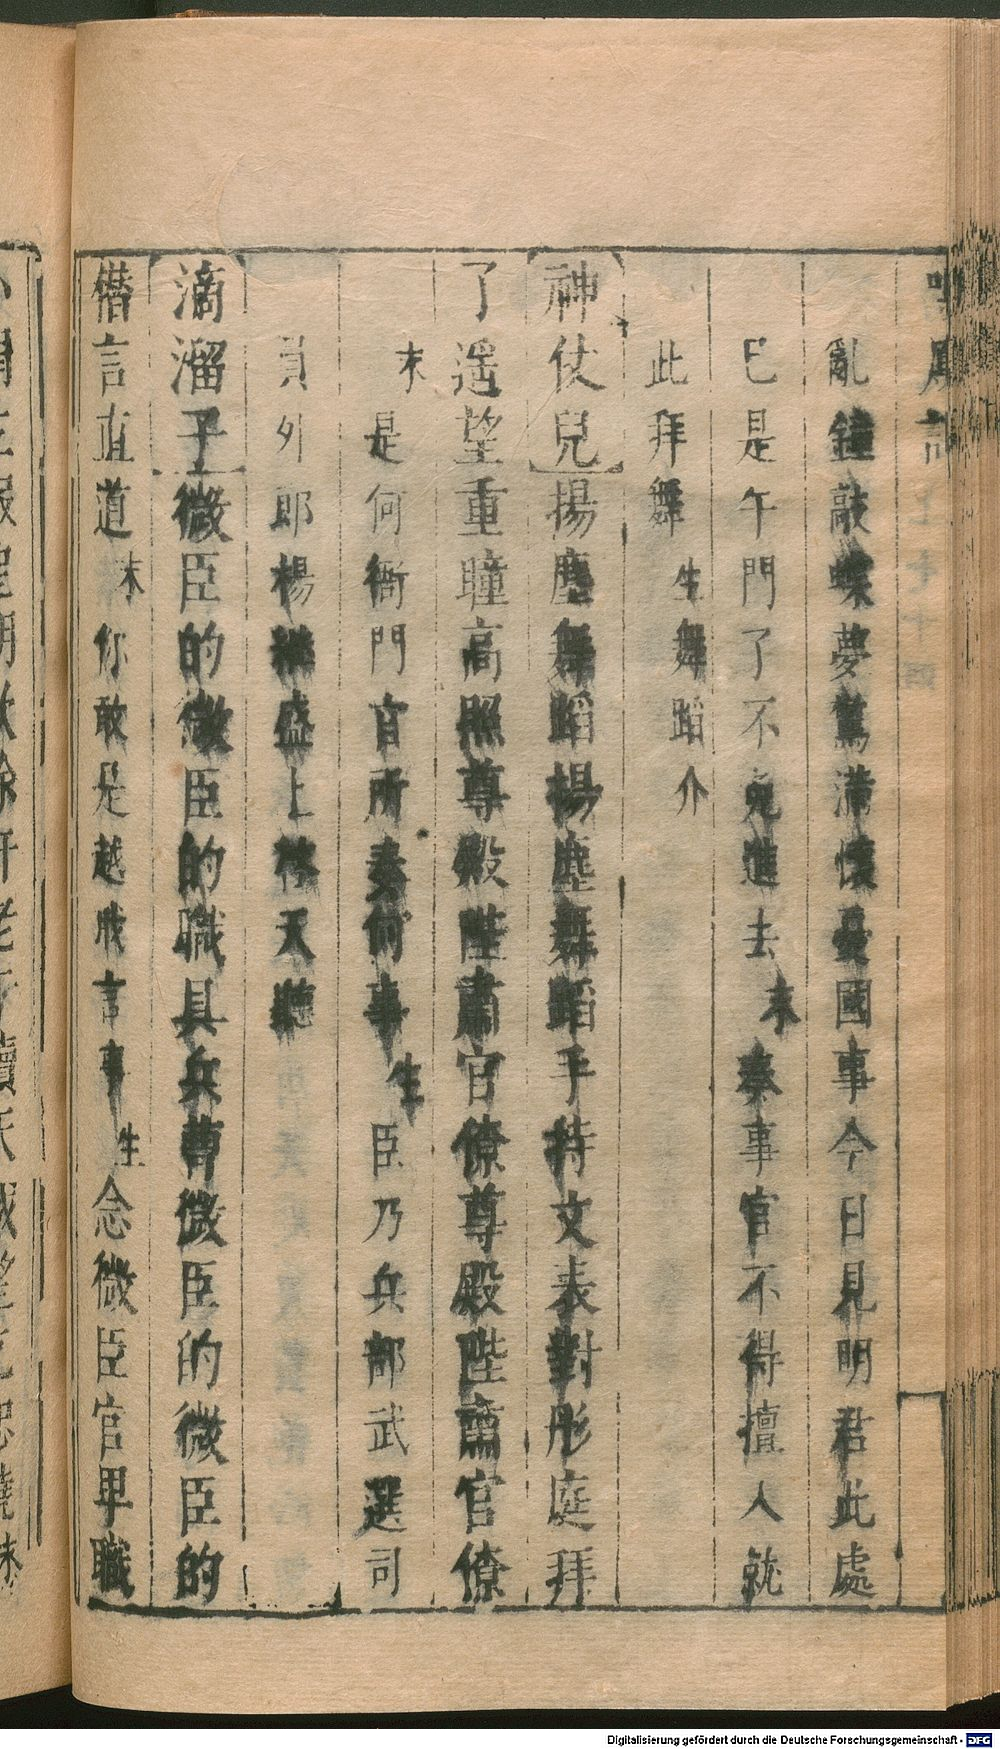 亂鐘敲蝶夢驚滿懷憂國事今日見明君此處
已是午門了不免進去末奏事官不得擅入就
此拜舞生舞蹈介
神仗兒揚塵舞蹈揚塵舞蹈手持文表對彤庭拜
了遥望重瞳高照尊殿陛肅官僚尊殿陛肅官僚
末是何衙門官所奏何事生臣乃兵部武選司
員外郎楊繼盛上禀天聽
滴溜子微臣的微臣的職具兵曹微臣的微臣的
僭言直道末你敢是越戕言事生念微臣官卑職
Digitalisierung gefördert durch die Deutsche Forschungsgemeinschaft - DFG